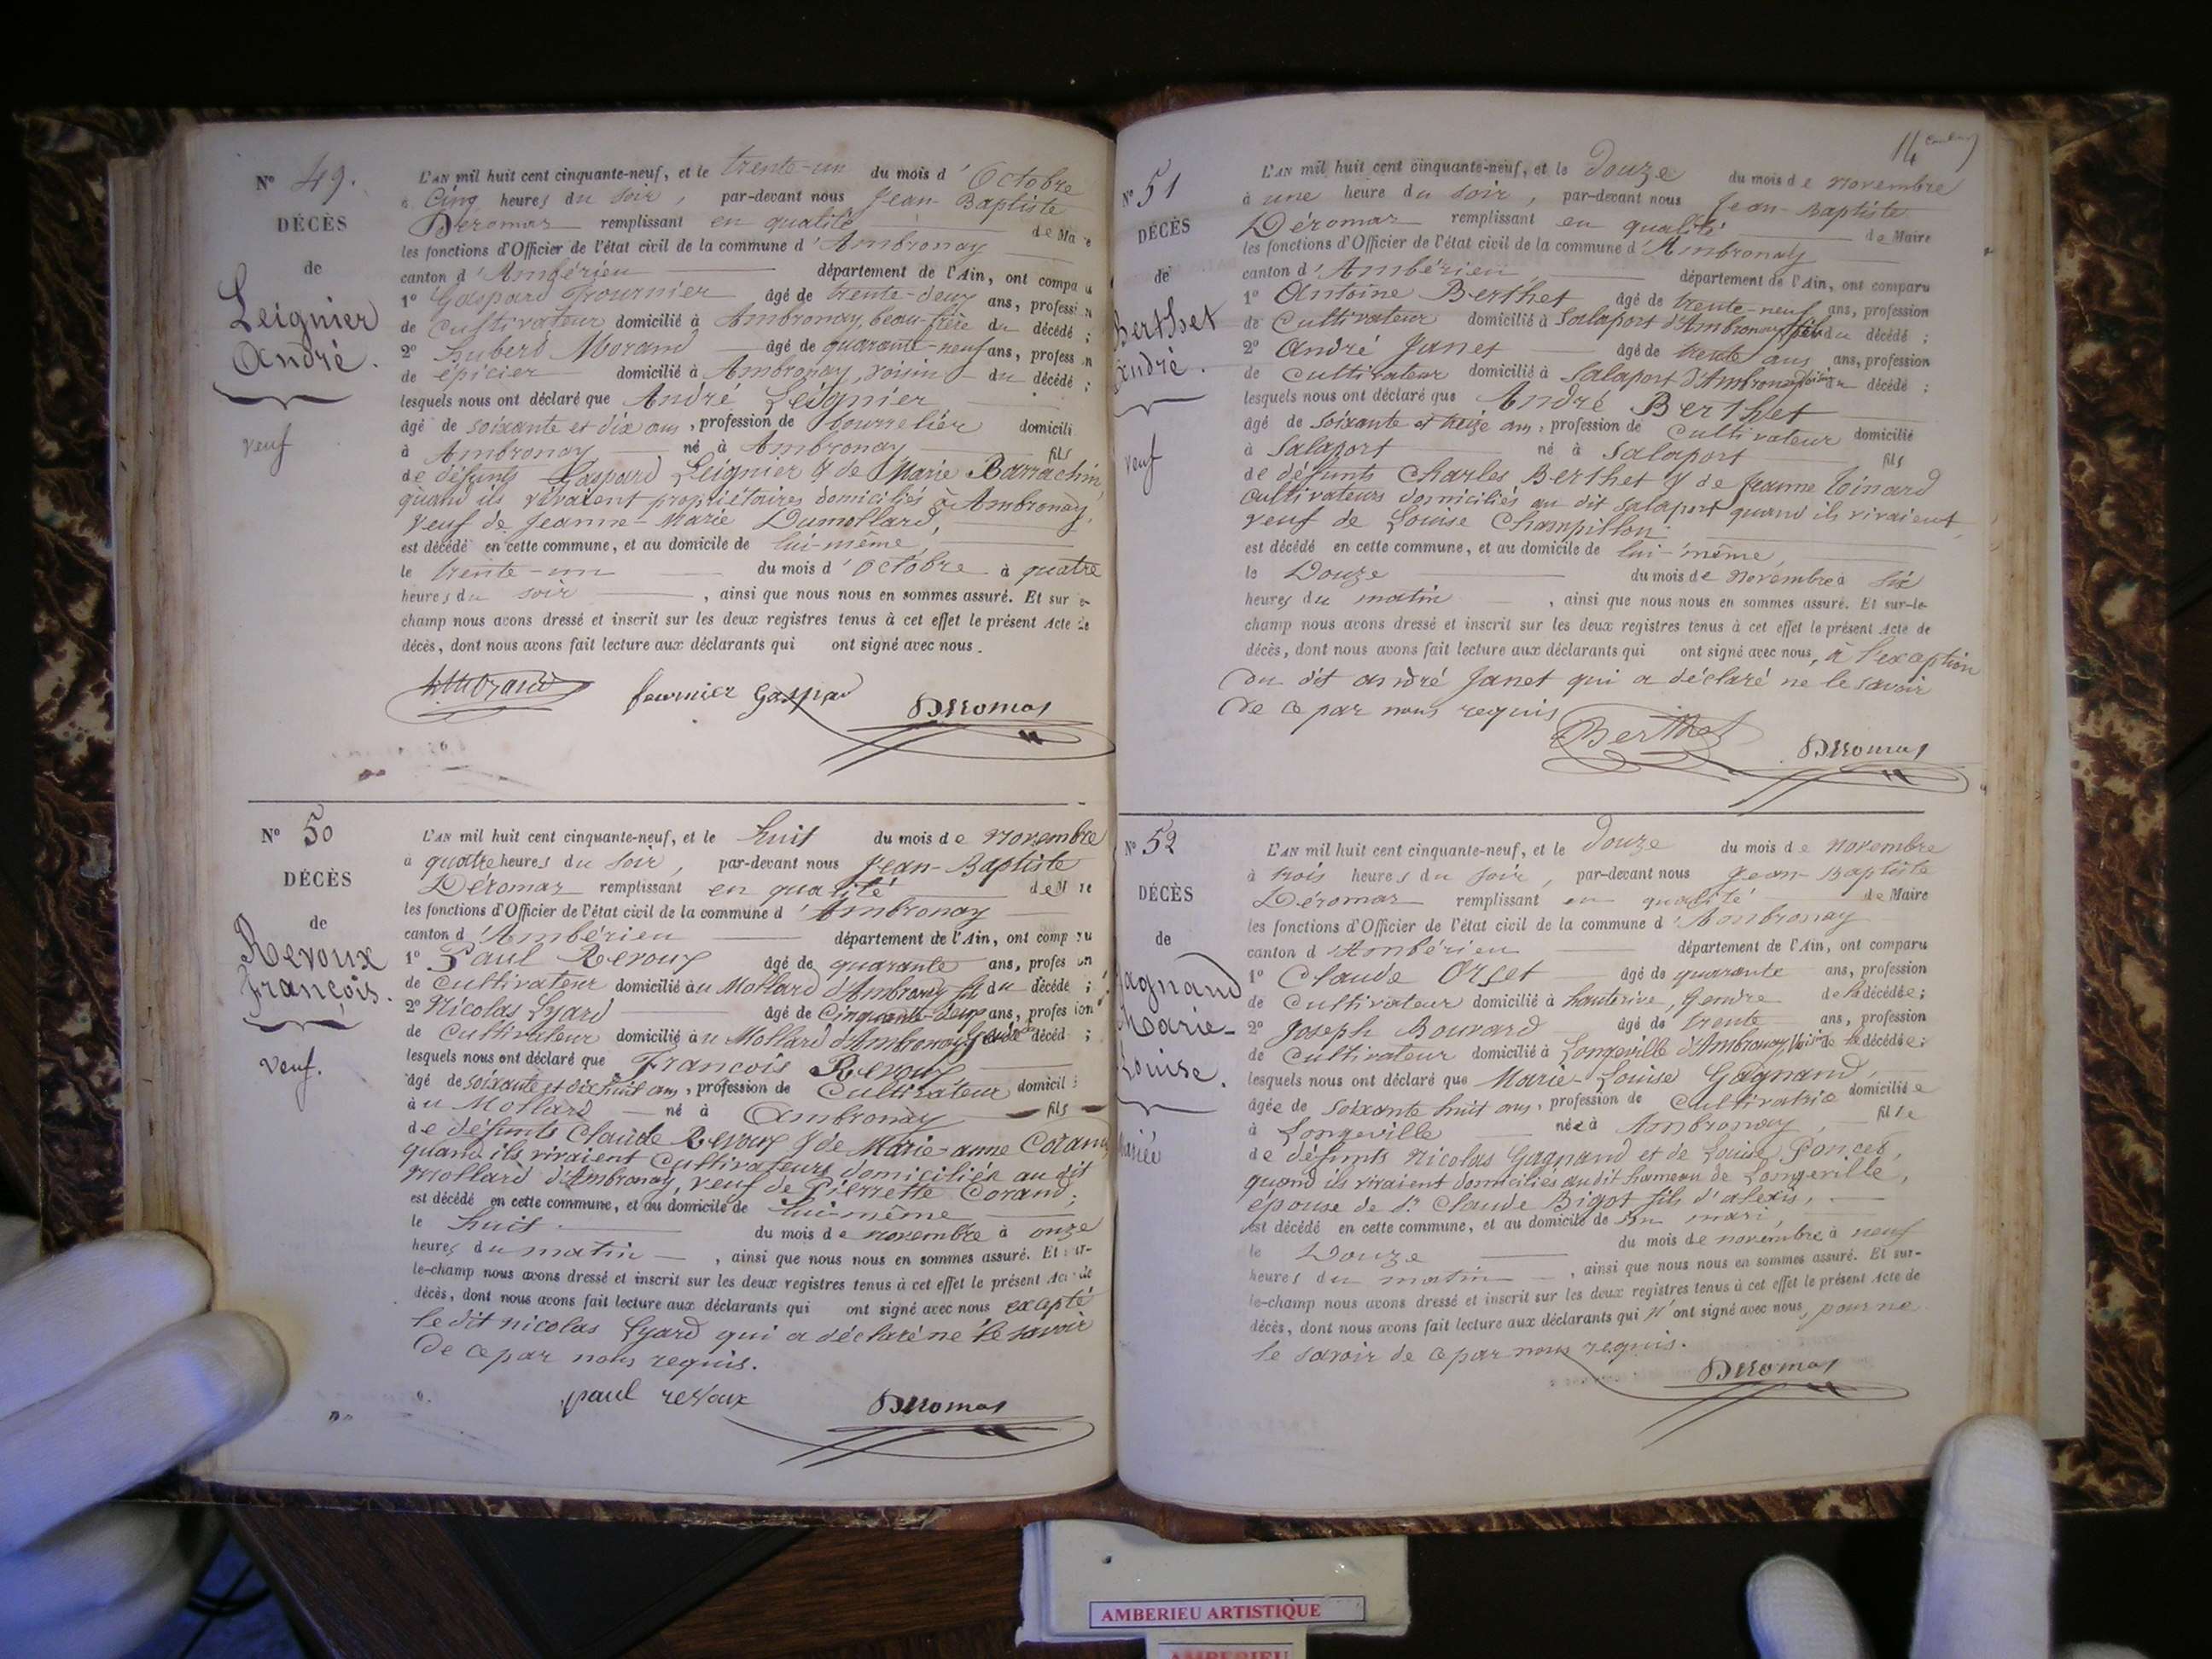 Nº 49.
DÉCÈS
de
Leignier
André.
veuf
L'AN mil huit cent cinquante-neuf, et le trente-un du mois d'Octobre
à Cinq heures du soir, par-devant nous Jean-Baptiste
Deromas remplissant en qualité de Ma re
les fonctions d'Officier de l'état civil de la commune d'Ambronay
canton d'Ambérieu département de l'Ain, ont compa u
1º Gaspard Fournier âgé de trente-deux ans, professi n
de Cultivateur domicilié à Ambronay, beau-frère du décédé ;
2º hubert Morand âgé de quarante-neuf ans, profess n
de épicier domicilié à Ambronay, voisin du décédé ;
lesquels nous ont déclaré que André Leignier
âgé de soixante et dix ans, profession de bourrelier domicili
à Ambronay né à Ambronay fils
de défunts Gaspard Leignier & de Marie Barrachin,
quand ils vivaient propriétaires domiciliés à Ambronay,
veuf de Jeanne-Marie Dumollard,
est décédé en cette commune, et au domicile de lui-même,
le trente-un du mois d'Octobre à quatre
heures du soir, ainsi que nous nous en sommes assuré. Et sur e-
champ nous avons dressé et inscrit sur les deux registres tenus à cet effet le présent Acte de
décès, dont nous avons fait lecture aux déclarants qui ont signé avec nous.
hMorand fournier Gaspar Deromas
Nº 50
DÉCÈS
de
Revoux
François.
Veuf.
L'AN mil huit cent cinquante-neuf, et le huit du mois de novembre
à quatre heures du soir, par-devant nous Jean-Baptiste
Déromas remplissant en qualité de M re
les fonctions d'Officier de l'état civil de la commune d'Ambronay
canton d'Ambérieu département de l'Ain, ont comp ru
1º Paul Revoux âgé de quarante ans, profes on
de Cultivateur domicilié au Mollard d'Ambronay fil du décédé ;
2º Nicolas Lyard âgé de Cinquante-deux ans, profes ion
de Cultivateur domicilié au Mollard d'Ambronay décéd ;
lesquels nous ont déclaré que François Revoux
âgé de soixante et dix huit ans, profession de Cultivateur domicil
au Mollard né à Ambronay fils
de défunts Claude Revoux & de Marie-anne Corand
quand ils vivaient Cultivateurs domiciliés au dit
mollard d'Ambronay, veuf de Pierrette Corand ;
est décédé en cette commune, et au domicile de lui-même
le huit du mois de novembre à onze
heures du matin, ainsi que nous nous en sommes assuré. Et sur-
le-champ nous avons dressé et inscrit sur les deux registres tenus à cet effet le présent Acte de
décès, dont nous avons fait lecture aux déclarants qui ont signé avec nous excepté
le dit nicolas Lyard qui a déclaré ne le savoir
de ce par nous requis.
paul revoux Deromas
14
Nº 51
DÉCÈS
de
Berthet
André.
veuf
L'AN mil huit cent cinquante-neuf, et le douze du mois de novembre
à une heure du soir, par-devant nous Jean-Baptiste
Déromas remplissant en qualité de Maire
les fonctions d'Officier de l'état civil de la commune d'Ambronay
canton d'Ambérieu département de l'Ain, ont comparu
1º Antoine Berthet âgé de trente-neuf ans, profession
de Cultivateur domicilié à Salaport d'Ambronay fils du décédé ;
2º André Janet âgé de trente ans ans, profession
de Cultivateur domicilié à Salaport d'Ambronay voisin du décédé ;
lesquels nous ont déclaré que André Berthet
âgé de soixante et treize ans, profession de Cultivateur domicilié
à Salaport né à Salaport fils
de défunts Charles Berthet & de Jeanne Tinard
cultivateurs domiciliés au dit Salaport quand ils vivaient,
veuf de Louise Champillon.
est décédé en cette commune, et au domicile de lui-même,
le Douze du mois de novembre à six
heures du matin, ainsi que nous nous en sommes assuré. Et sur-le-
champ nous avons dressé et inscrit sur les deux registres tenus à cet effet le présent Acte de
décès, dont nous avons fait lecture aux déclarants qui ont signé avec nous, à l'exception
du dit andré Janet qui a déclaré ne le savoir
de ce par nous requis
Berthet Deromas
Nº 52
DÉCÈS
de
Gagnand
Marie-
Louise.
Mariée
L'AN mil huit cent cinquante-neuf, et le douze du mois de novembre
à trois heures du soir, par-devant nous Jean-Baptiste
Déromas remplissant en qualité de Maire
les fonctions d'Officier de l'état civil de la commune d'Ambronay
canton d'Ambérieu département de l'Ain, ont comparu
1º Claude Orset âgé de quarante ans, profession
de Cultivateur domicilié à hauterive, Gendre de la décédée ;
2º Joseph Bouvard âgé de trente ans, profession
de Cultivateur domicilié à Longeville d'Ambronay, Voisin de la décédée ;
lesquels nous ont déclaré que Marie-Louise Gagnand,
âgée de Soixante huit ans, profession de Cultivatrice domiciliée
à Longeville née à Ambronay, fille
de défunts Nicolas Gagnand et de Louise Poncet,
quand ils vivaient domiciliés audit hameau de Longeville,
épouse de Sr Claude Bigot fils d'alexis,
est décédé en cette commune, et au domicile de son mari,
le Douze du mois de novembre à neuf
heures du matin, ainsi que nous nous en sommes assuré. Et sur-
le-champ nous avons dressé et inscrit sur les deux registres tenus à cet effet le présent Acte de
décès, dont nous avons fait lecture aux déclarants qui n'ont signé avec nous, pour ne
le savoir de ce par nous requis.
Deromas
AMBERIEU ARTISTIQUE
AMBERIEU